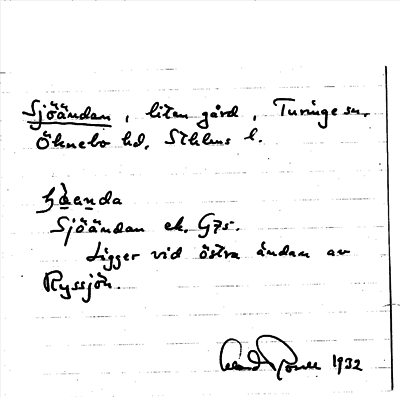 Sjöändan, liten gård, Turinge sn.
Öknebo hd, Sthlms l.
Sjöändan ek. G75.
Ligger vid östra ändan av
Ryssjön.
1932